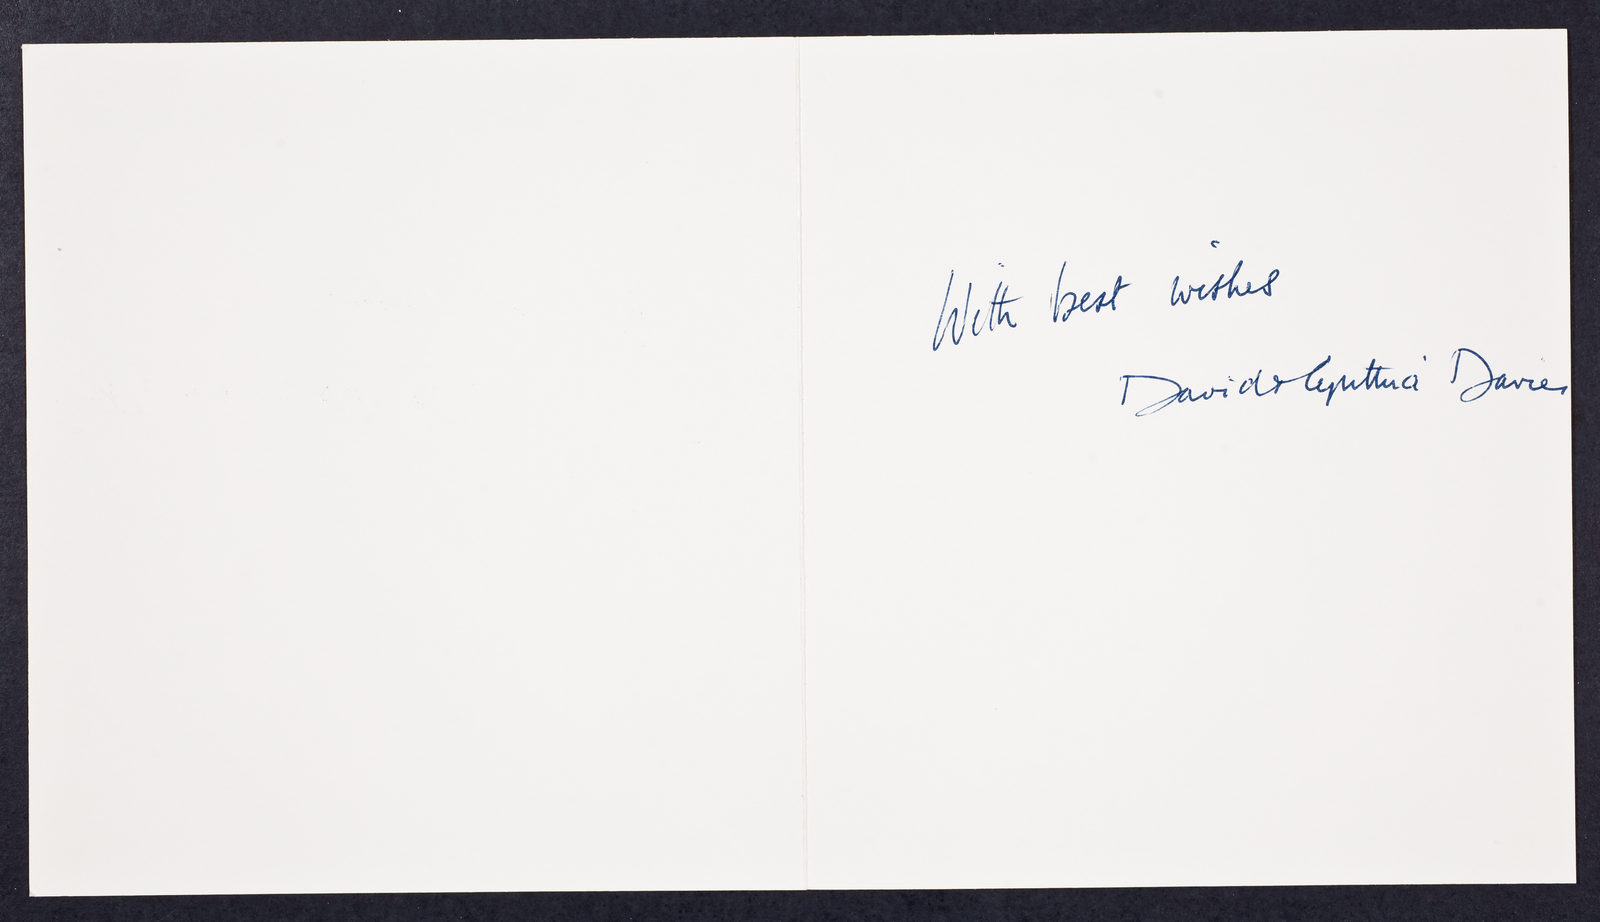 With best wishes
David & Cynthia Davies